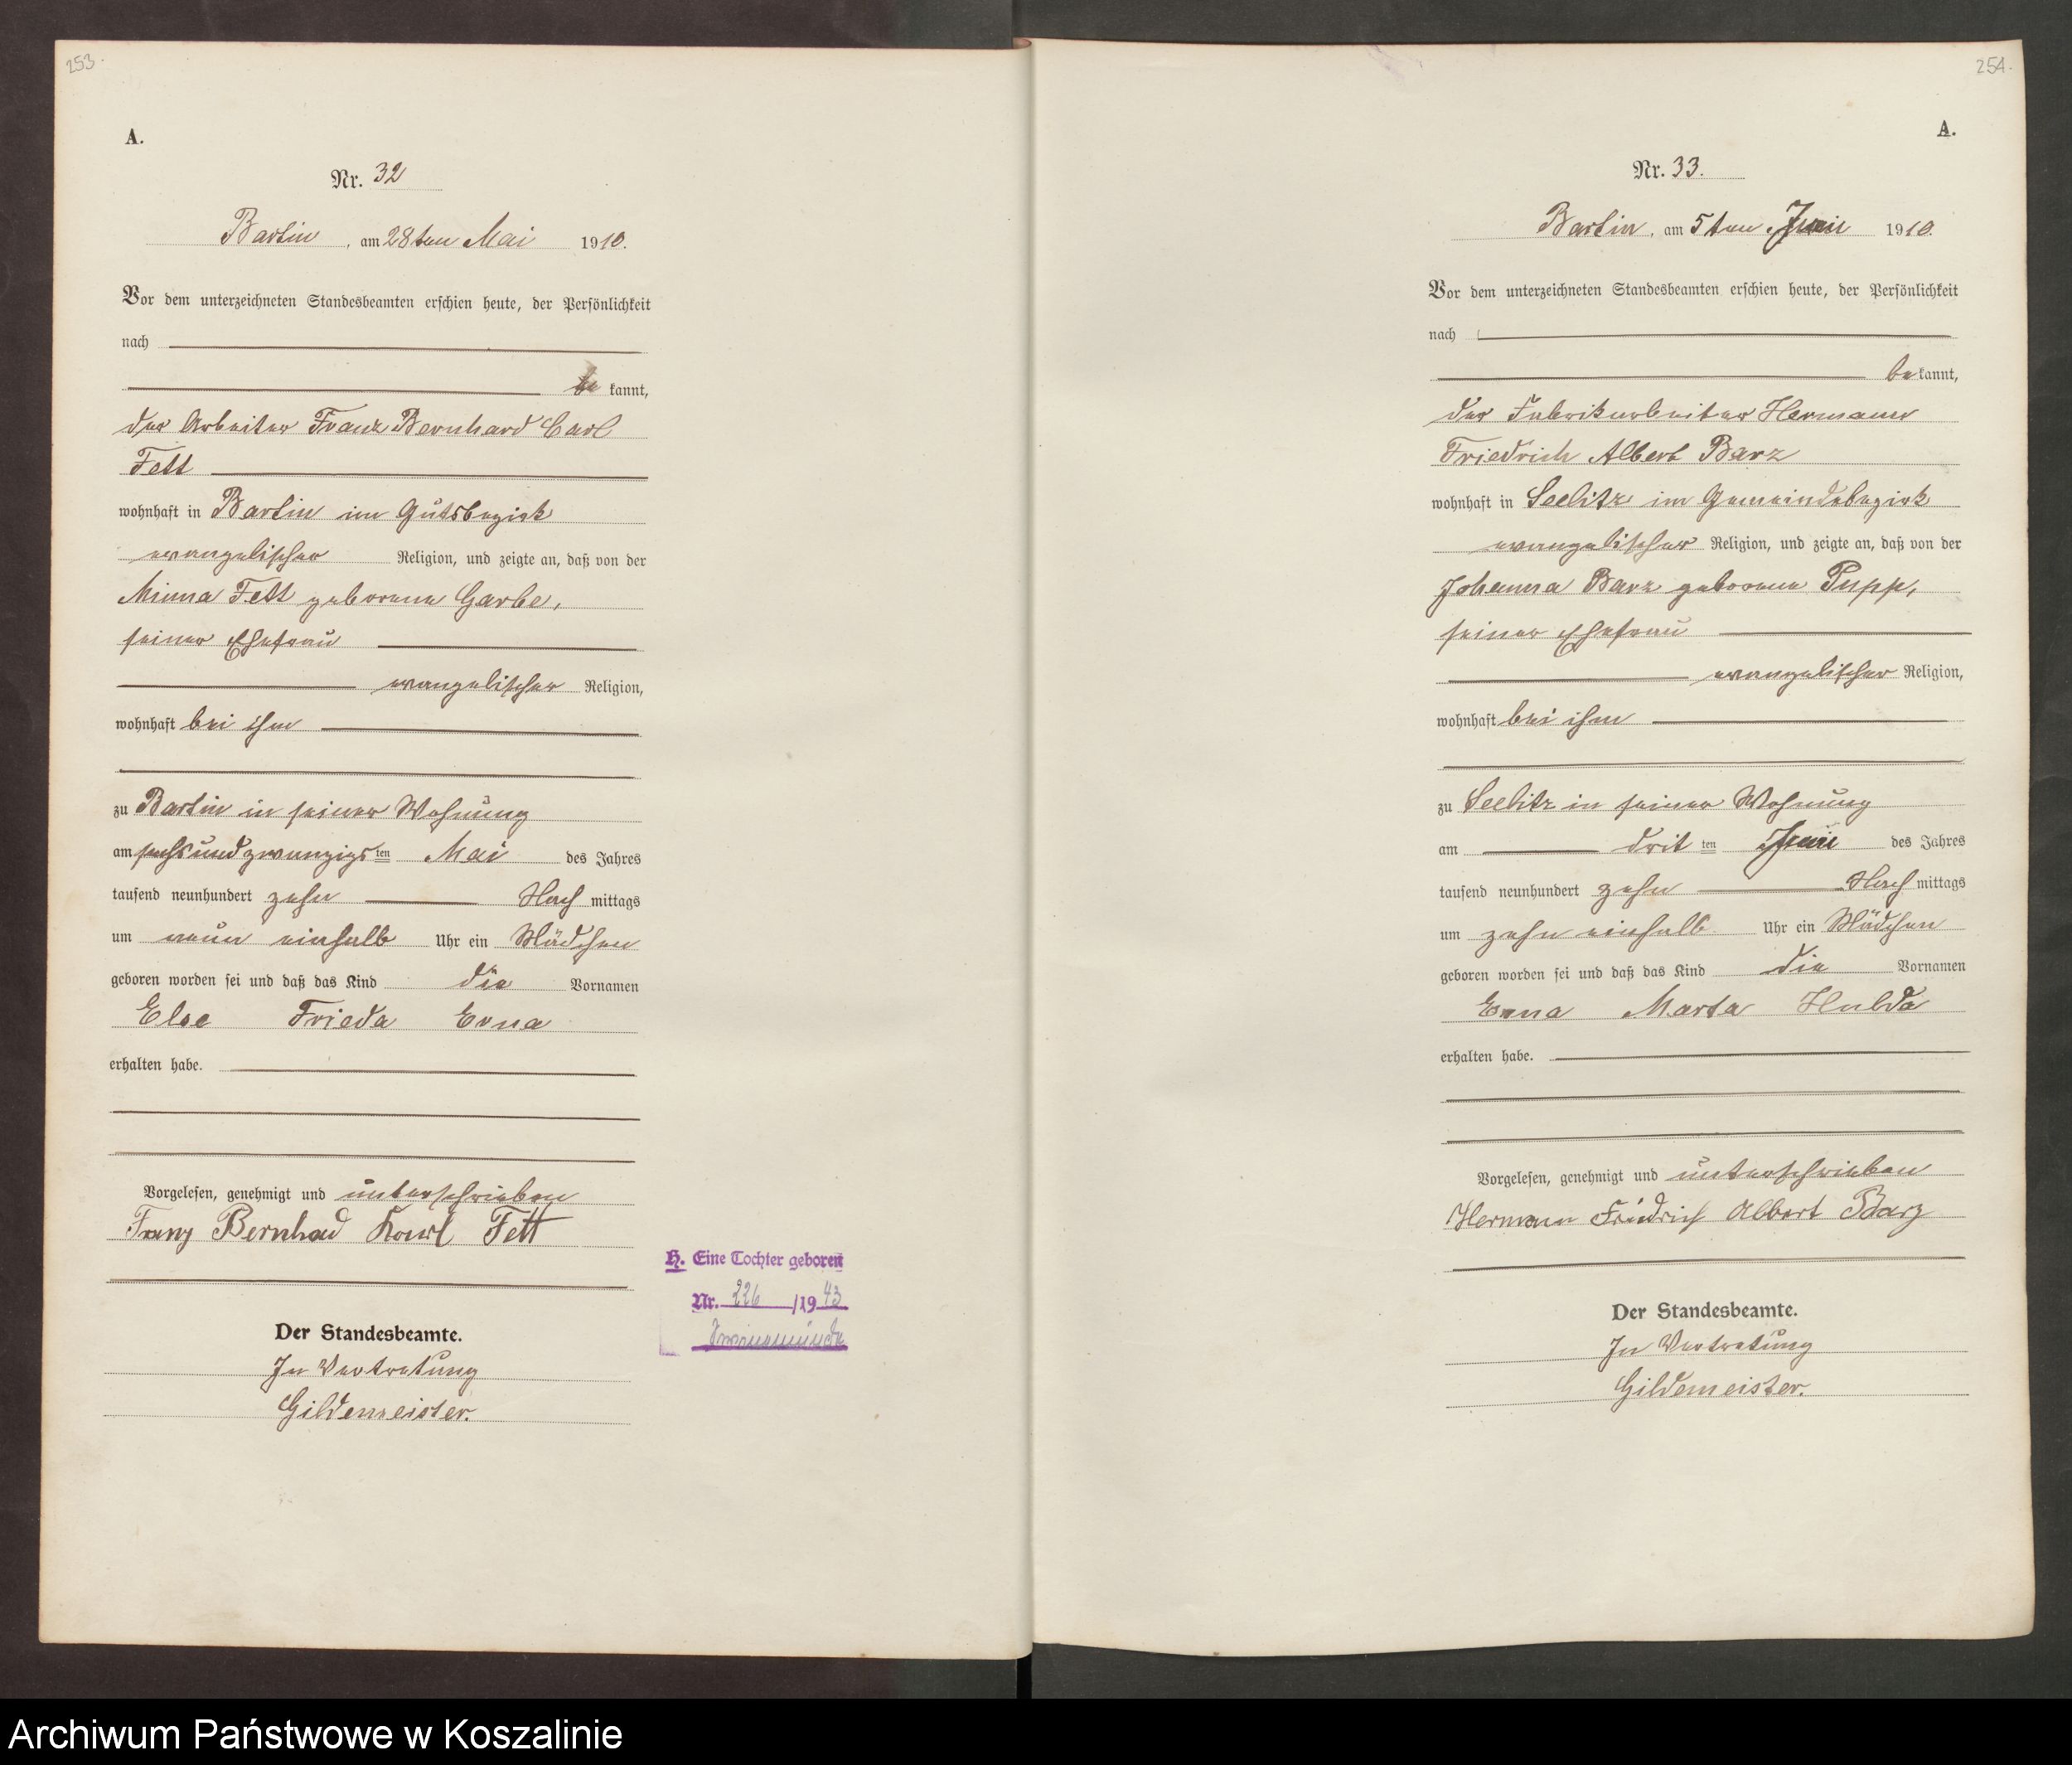 253.
A.
Nr. 32
Bartin, am 28ten Mai 1910.
Vor dem unterzeichneten Standesbeamten erschien heute, der Persönlichkeit
nach
be kannt,
der Arbeiter Franz Bernhard Carl
Fett
wohnhaft in Bartin im Gutsbezirk
evangelischer Religion, und zeigte an, daß von der
Minna Fett geborene Garbe,
seiner Ehefrau
evangelischer Religion,
wohnhaft bei ihm
zu Bartin in seiner Wohnung
am sechsundzwanzigsten Mai des Jahres
tausend neunhundert zehn Nach mittags
um neun einhalb Uhr ein Mädchen
geboren worden sei und daß das Kind die Vornamen
Else Frieda Erna
erhalten habe.
Vorgelesen, genehmigt und unterschrieben
Franz Bernhad Karl Fett
Der Standesbeamte.
In Vertretung
Gildemeister.
H. Eine Tochter geboren
Nr. 226 /1943
Swinemünde
254.
A.
Nr. 33.
Bartin, am 5ten Juni 1910.
Vor dem unterzeichneten Standesbeamten erschien heute, der Persönlichkeit
nach
be kannt,
der Fabrikarbeiter Hermann
Friedrich Albert Barz
wohnhaft in Seelitz im Gemeindebezirk
evangelischer Religion, und zeigte an, daß von der
Johanna Barz geborene Pupp,
seiner Ehefrau
evangelischer Religion,
wohnhaft bei ihm
zu Seelitz in seiner Wohnung
am dritten Juni des Jahres
tausend neunhundert zehn Nach mittags
um zehn einhalb Uhr ein Mädchen
geboren worden sei und daß das Kind die Vornamen
Erna Marta Hulda
erhalten habe.
Vorgelesen, genehmigt und unterschrieben
Hermann Friedrich Albert Barz
Der Standesbeamte.
In Vertretung
Gildemeister.
Archiwum Państwowe w Koszalinie